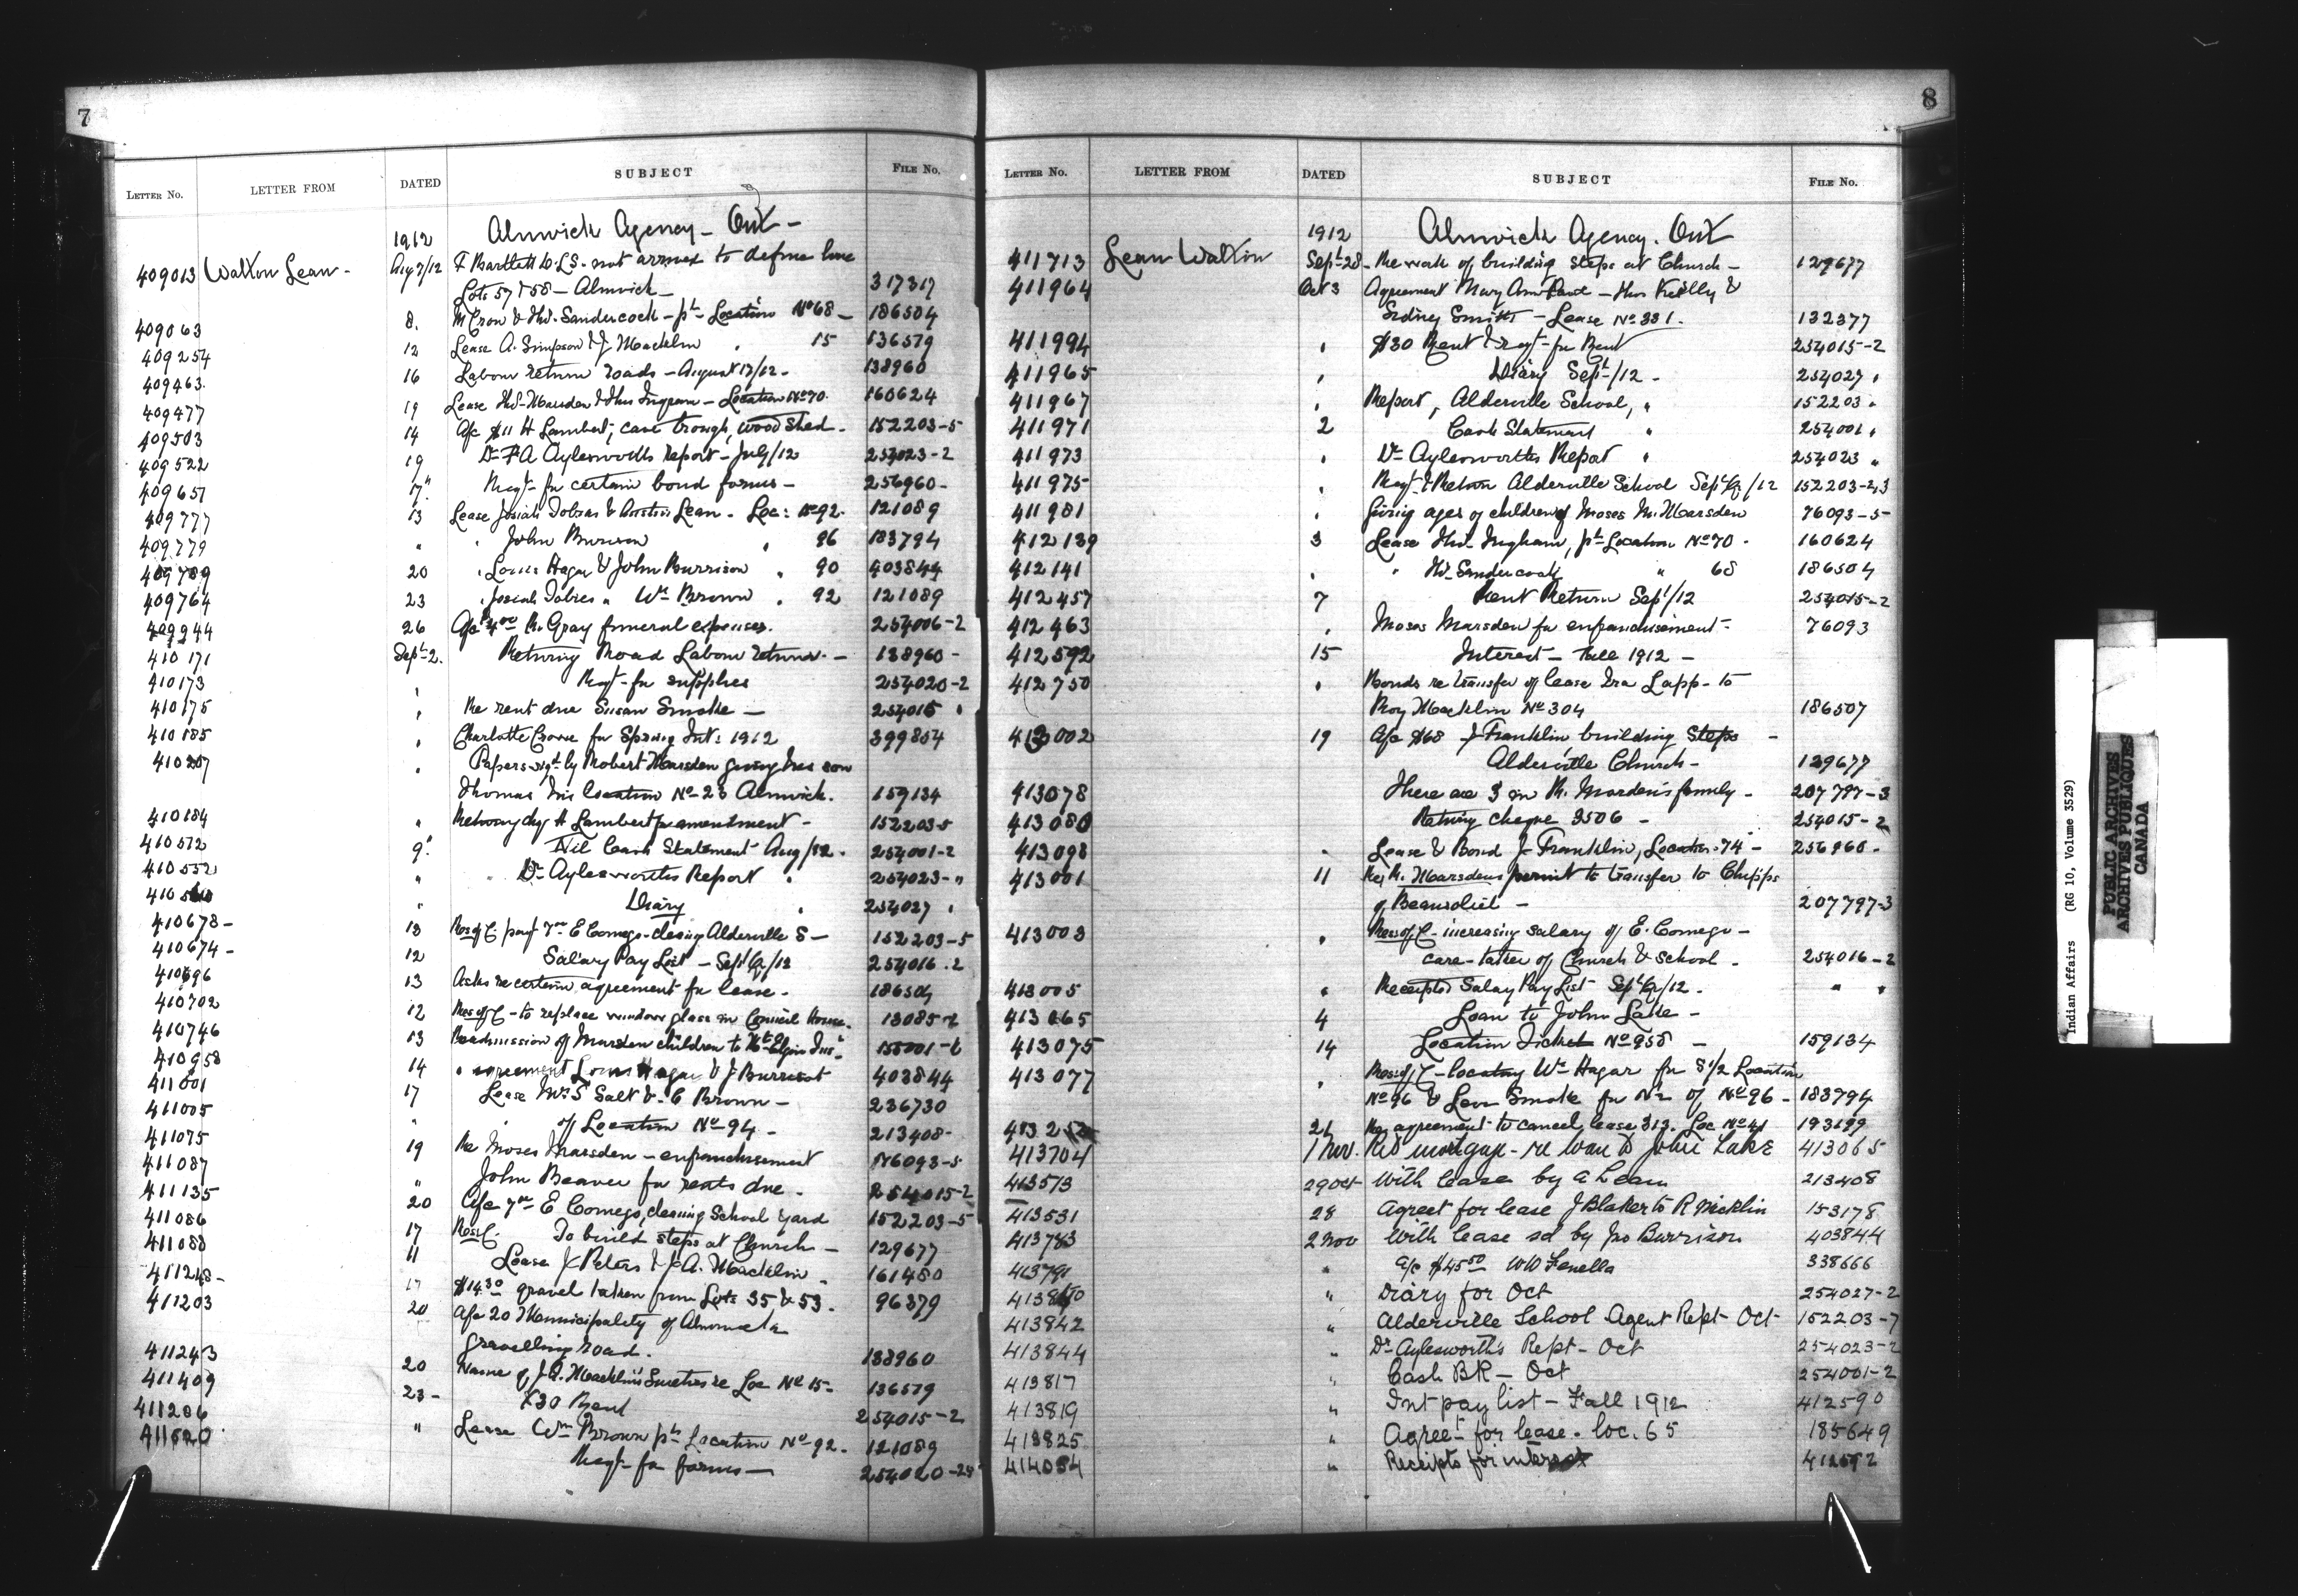 7
LETTER NO. LETTER FROM DATED SUBJECT FILE NO.
1912 Alnwick Agency - Ont -
409013 Walton Lean - Aug 7/12 F Bartlett D.L.S. - not arrived to define line
Lots 57 & 58 - Alnwick - 317317
409063 8. M Crow & Thos. Sandercock - pt Location No 68 - 186504
409254 12 Lease A. Simpson & J Macklin " 15 136579
409463 16 Labour return roads - August 17/12 - 138960
409477 19 Lease Thos. Marsden & Thos Ingram - Location No 70. 160624
409503 14 A/c $11 H Lambert, eave trough, wood shed. 152203-5
409522 19 Dr F A Aylesworth's report - July/12 254023-2
409651 17 Reqt for certain bond forms - 256960 -
409777 13 Lease Josiah Dobies & Austin Lean - Loc: No 92. 121089
409779 " " John Burison " 96 183794
409789 20 " Louis Hagar & John Burrison " 90 403844
409764 23 " Josiah Dobies " Wm Brown " 92 121089
409944 26 A/c 4.00 R. Gray funeral expenses. 254006-2
410171 Sept 2. Returning Road Labour returns - 138960 -
410173 " Reqt for supplies 254020-2
410175 " Re rent due Susan Smoke - 254015 "
410185 " Charlotte Crowe for Spring Int: 1912 399854
410207 " Papers sigd by Robert Marsden giving his son
Thomas his location No 23 Alnwick. 159134
410184 " Returning chq H Lambert for amendment - 152203-5
410572 9 Nil Cash Statement Aug/12 - 254001-2
410552 " Dr Aylesworths Report " 254023- "
" Diary " 254027 "
410678 - 13 Res of C pay 7.00 E Comego - cleaning Alderville S - 152203-5
410674 - 12 Salary Pay List - Sept Qr/12 254016-2
410696 13 Asks re certain agreement for lease - 186504
410702 12 Res of C - to replace window glass in Council House. 13085-2
410746 13 Readmission of Marsden children to Mt Elgin Ins. 155001-6
410958 14 " agreement Louis Hagar & J Burrisot 403844
411001 17 Lease Mrs S Salt & C Brown - 236730
411005 " of Location No 94 - 213408 -
411075 19 Re Moses Marsden - enfranchisement 76093-5
411087 " John Beaver for rents due. 254015-2
411135 20 A/c 7.00 E Comego, cleaning School yard 152203-5
411086 17 Res C. To build steps at Church - 129677
411088 11 Lease J Peters & J. A. Macklin - 161480
411248 - 17 $14.30 gravel taken from Lots 35 & 53. 96379
411203 20 A/c 20 Municipality of Alnwick
gravelling road. 138960
411243 20 Name of J. A. Macklin's Sureties re Loc No 15 - 136579
411409 23 - $30 Rent 254015-2
411286 " Lease Wm Brown pt Location No 92. 121089
411520 Reqt for forms - 254020-2
8
LETTER NO. LETTER FROM DATED SUBJECT FILE NO.
1912 Alnwick Agency. Ont
411713 Lean Walton Sept 28 - Re work of building steps at Church - 129677
411964 Oct 3 Agreement Mary Ann - Thos Kelly &
Sidney Smith - Lease No 331. 132377
411994 " $30 Rent & reqt for Rent 254015-2
411965 " Diary Sept/12 - 254027 "
411967 " Report, Alderville School, " 152203 "
411971 2 Cash Statement " 254001 "
411973 " Dr Aylesworths Report " 254023 "
411975 " Reqt & Return Alderville School Sept Qr/12 152203-2,3
411981 " Giving ages of children of Moses M. Marsden 76093-5
412139 3 Lease Thos. Ingham, pt Location No 70 - 160624
412141 " " Thos. Sandercock " 68 186504
412457 7 Rent Return Sept/12 254015-2
412463 " Moses Marsden for enfranchisement - 76093
412592 15 Interest - Fall 1912 -
412750 " Bonds re transfer of lease Ira Lapp - to
Roy Macklin No 304 186507
413002 19 A/c $68 J Franklin building Steps -
Alderville Church - 129677
413078 There are 3 in R. Marsden's family - 207797-3
413080 Returng cheque 3506 - 254015-2
413098 " Lease & Bond J. Franklin, Location 74 - 256960 -
413001 11 Re R. Marsdens permit to transfer to Chipps
of Beausoliel - 207797-3
413003 " Res of C - increasing salary of E. Comego -
care-taker of Church & School - 254016-2
413005 " Receipted Salary Pay List Sept Qr/12. " "
413065 4 Loan to John Lake -
413075 14 Location Ticket No 958 - 159134
413077 " Res of C - locating Wm Hagar for S 1/2 Location
No 96 & Levi Smoke for N 1/2 of No 96 - 183794
21 Re agreement to cancel lease 313. Loc No 41 193199
413704 1 Nov. Retd mortgage - re loan to John Lake 413065
413513 29 Oct With lease by A Lean 213408
413531 28 Agreet for lease J Blaker to R Macklin 153178
413783 2 Nov With lease sd by Jno Burrison 403844
413791 " a/c $45.50 WW Fenella 338666
" Diary for Oct 254027-2
413842 " Alderville School Agent Rept - Oct 152203-7
413844 " Dr Aylesworth's Rept - Oct 254023-2
413817 " Cash BR - Oct 254001-2
413819 " Int pay list - Fall 1912 412590
413825 " Agreet for lease. loc. 65 185649
414054 " Receipts for interest 412592
Indian Affairs (RG 10, Volume 3529)
PUBLIC ARCHIVES
ARCHIVES PUBLIQUES
CANADA